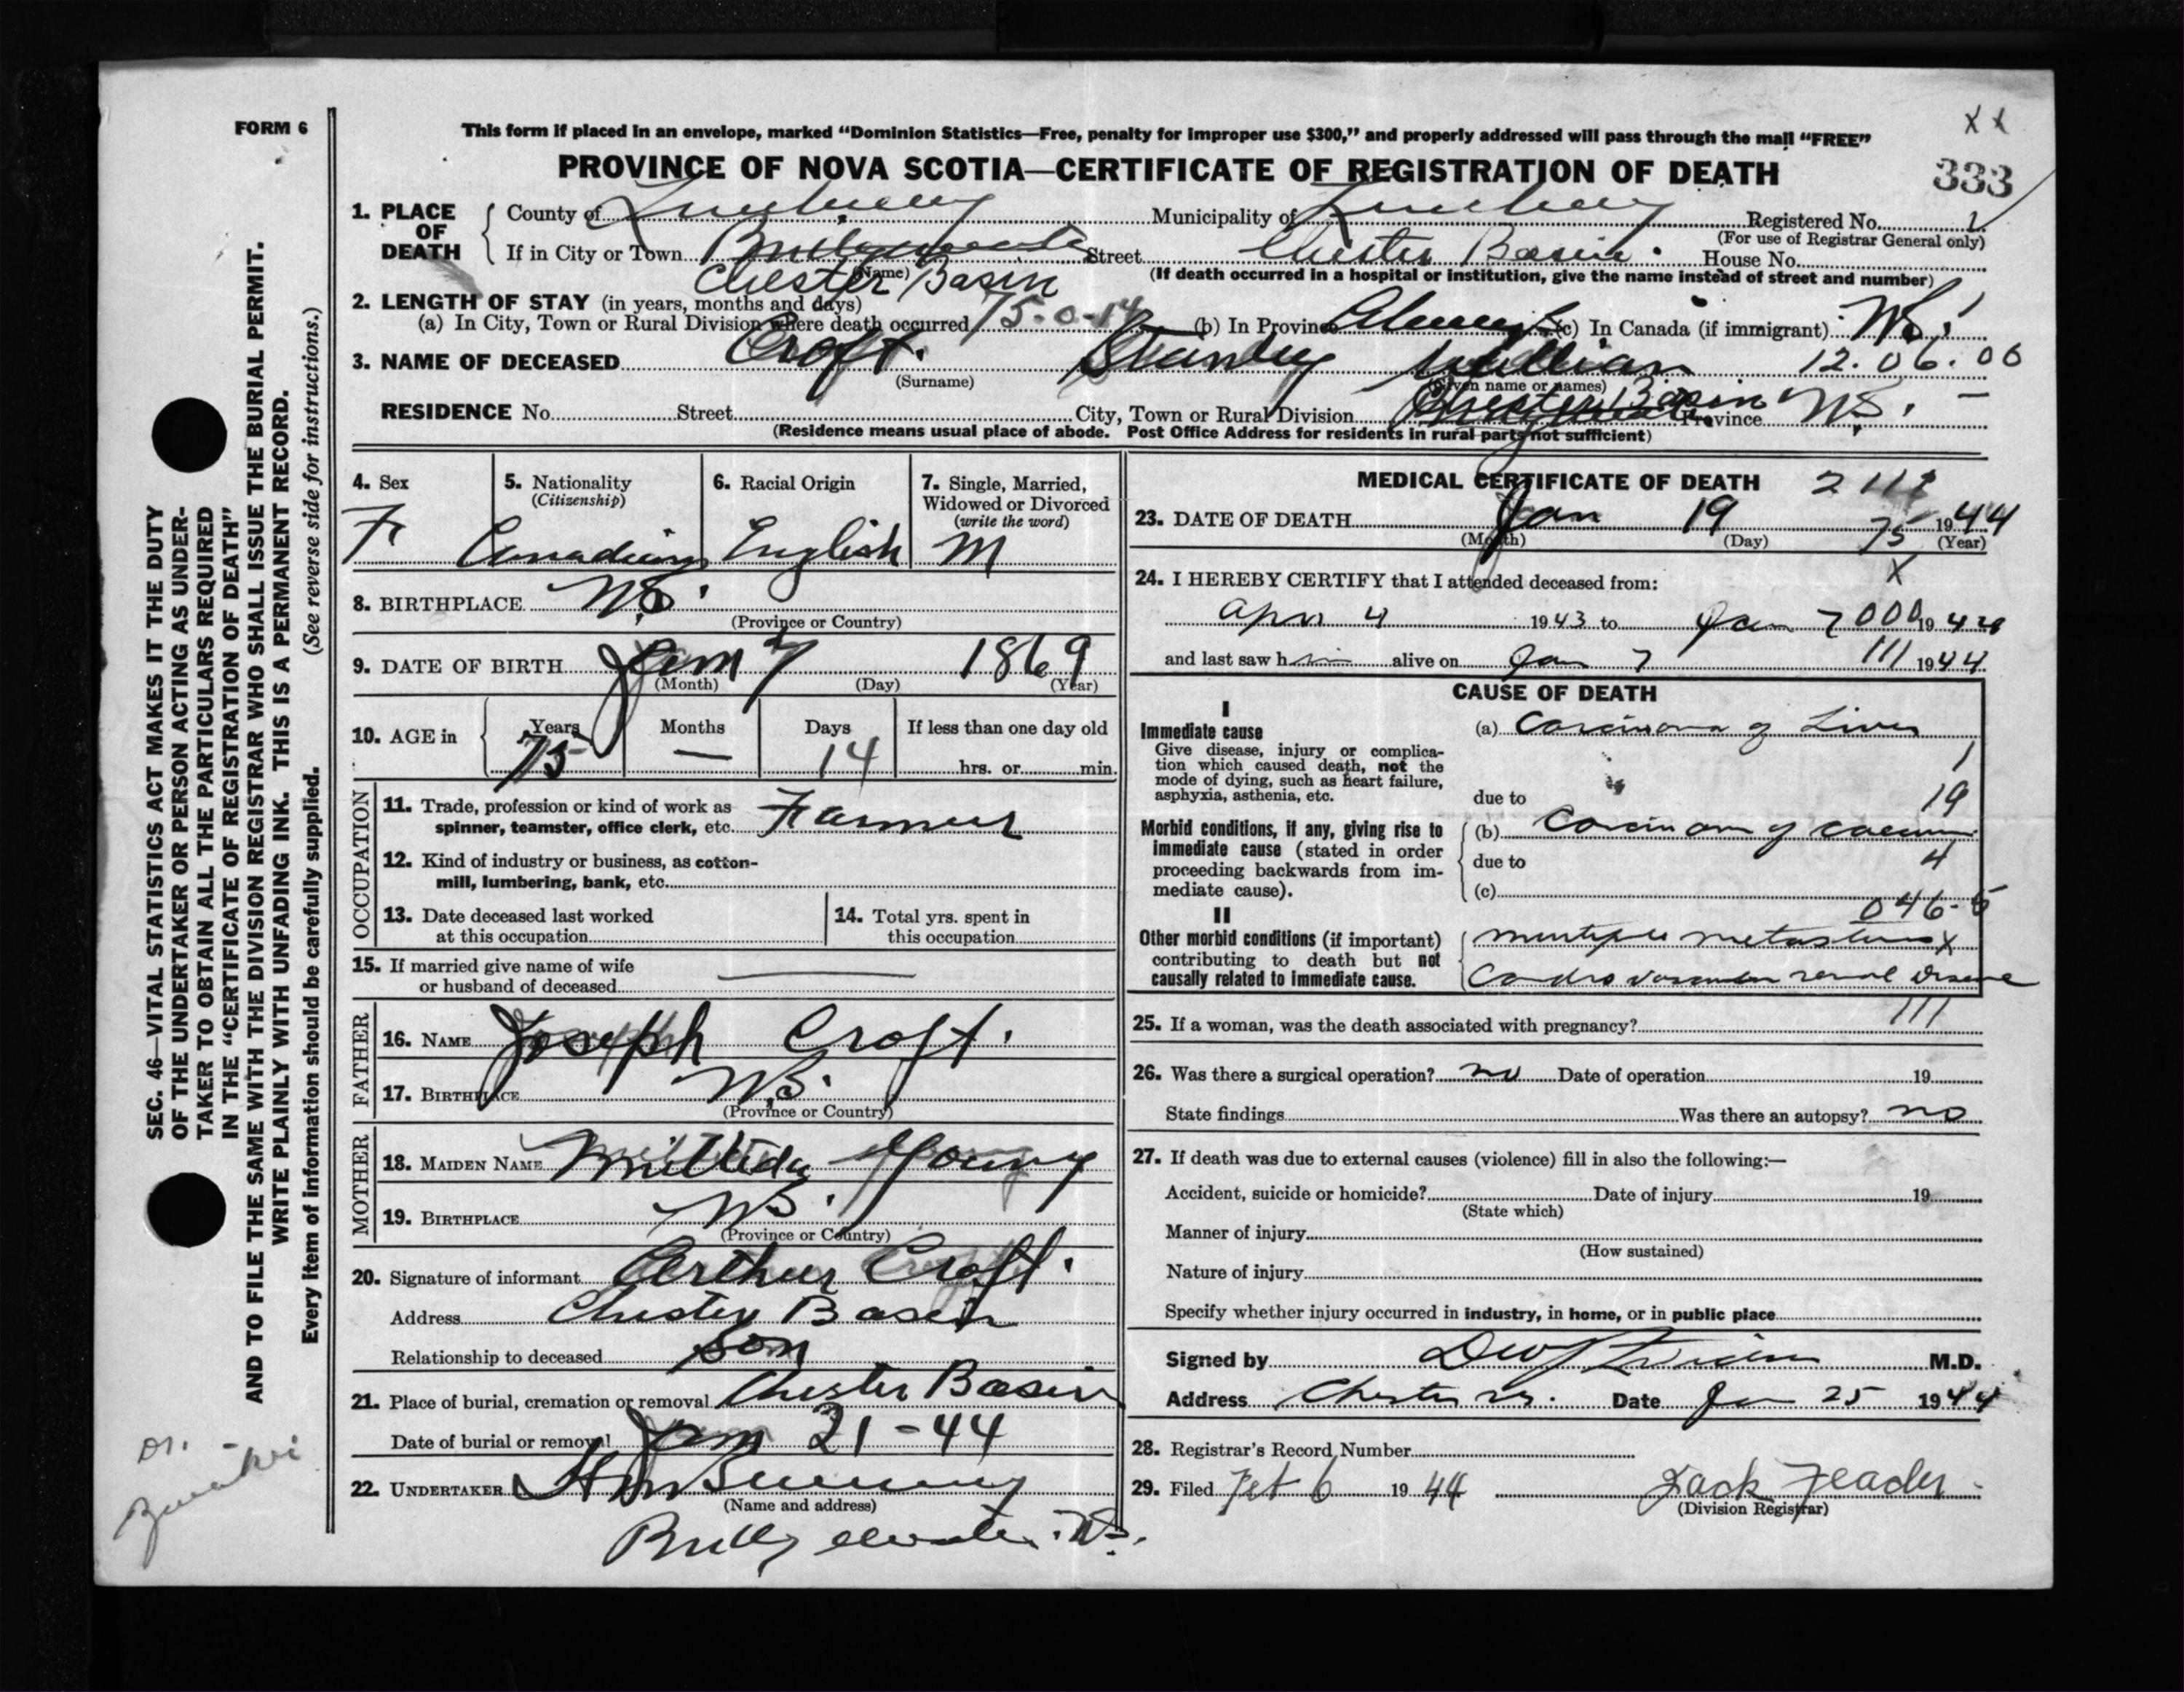 FORM 6
This form if placed in an envelope, marked “Dominion Statistics—Free, penalty for improper use $300,” and properly addressed will pass through the mail “FREE”
X X
PROVINCE OF NOVA SCOTIA—CERTIFICATE OF REGISTRATION OF DEATH
333
1. PLACE OF DEATH
County of Lunenburg Municipality of Lunenburg Registered No. 1
(For use of Registrar General only)
If in City or Town Bridgewater Street Chester Basin. House No.
(Name)
Chester Basin
(If death occurred in a hospital or institution, give the name instead of street and number)
2. LENGTH OF STAY (in years, months and days)
(a) In City, Town or Rural Division where death occurred 75-0-14 (b) In Province Always (c) In Canada (if immigrant)
3. NAME OF DECEASED Croft. Stanley William 12.06.00
(Surname) (Given name or names)
RESIDENCE No. Street City, Town or Rural Division Chester Basin Province N.S. —
(Residence means usual place of abode. Post Office Address for residents in rural parts not sufficient)
4. Sex
F
5. Nationality
(Citizenship)
Canadian
6. Racial Origin
English
7. Single, Married, Widowed or Divorced
(write the word)
M
8. BIRTHPLACE N.S.
(Province or Country)
9. DATE OF BIRTH Jan 7 1869
(Month) (Day) (Year)
10. AGE in
Years Months Days If less than one day old
75 — 14 hrs. or min.
OCCUPATION
11. Trade, profession or kind of work as
spinner, teamster, office clerk, etc. Farmer
12. Kind of industry or business, as cotton-
mill, lumbering, bank, etc.
13. Date deceased last worked
at this occupation
14. Total yrs. spent in
this occupation
15. If married give name of wife
or husband of deceased
FATHER
16. NAME Joseph Croft.
17. BIRTHPLACE N.S.
(Province or Country)
MOTHER
18. MAIDEN NAME Young
19. BIRTHPLACE N.S.
(Province or Country)
20. Signature of informant Arthur Croft.
Address Chester Basin
Relationship to deceased Son
21. Place of burial, cremation or removal Chester Basin
Date of burial or removal Jan 21-44
22. UNDERTAKER
(Name and address)
Bridgewater. N.S.
MEDICAL CERTIFICATE OF DEATH 2 111
23. DATE OF DEATH Jan 19 1944
(Month) (Day) (Year)
75
X
24. I HEREBY CERTIFY that I attended deceased from:
Apr 4 1943 to Jan 7 000 1944
and last saw him alive on Jan 7 111 1944
CAUSE OF DEATH
I
Immediate cause
Give disease, injury or complica-
tion which caused death, not the
mode of dying, such as heart failure,
asphyxia, asthenia, etc.
(a) Carcinoma of Liver
1
due to
19
Morbid conditions, if any, giving rise to
immediate cause (stated in order
proceeding backwards from im-
mediate cause).
(b) Carcinoma of caecum
due to
4
(c)
046-5
II
Other morbid conditions (if important)
contributing to death but not
causally related to immediate cause.
multiple metastasis X
Cardio vascular renal disease
111
25. If a woman, was the death associated with pregnancy?
26. Was there a surgical operation? no Date of operation 19
State findings Was there an autopsy? no
27. If death was due to external causes (violence) fill in also the following:—
Accident, suicide or homicide? Date of injury 19
(State which)
Manner of injury
(How sustained)
Nature of injury
Specify whether injury occurred in industry, in home, or in public place
Signed by M.D.
Address Chester N.S. Date Jan 25 1944
28. Registrar's Record Number
29. Filed Feb 6 1944 Zack
(Division Registrar)
SEC. 46—VITAL STATISTICS ACT MAKES IT THE DUTY
OF THE UNDERTAKER OR PERSON ACTING AS UNDER-
TAKER TO OBTAIN ALL THE PARTICULARS REQUIRED
IN THE “CERTIFICATE OF REGISTRATION OF DEATH”
AND TO FILE THE SAME WITH THE DIVISION REGISTRAR WHO SHALL ISSUE THE BURIAL PERMIT.
WRITE PLAINLY WITH UNFADING INK. THIS IS A PERMANENT RECORD.
Every item of information should be carefully supplied. (See reverse side for instructions.)
Dr.